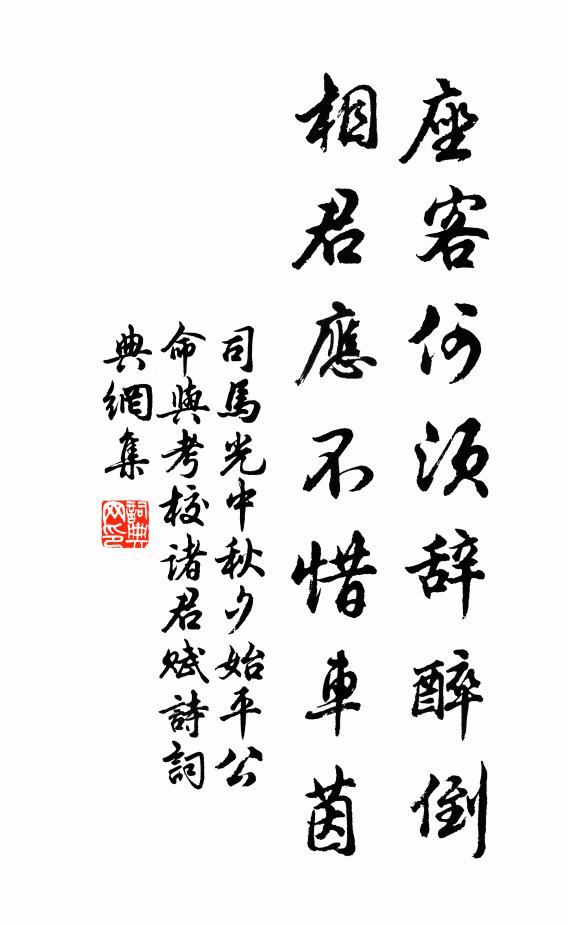 座客何須辞醉倒
相君應不惜車茵
司馬光中秋夕始平公
命與考校诸君赋詩詞
典網集
詞典網印